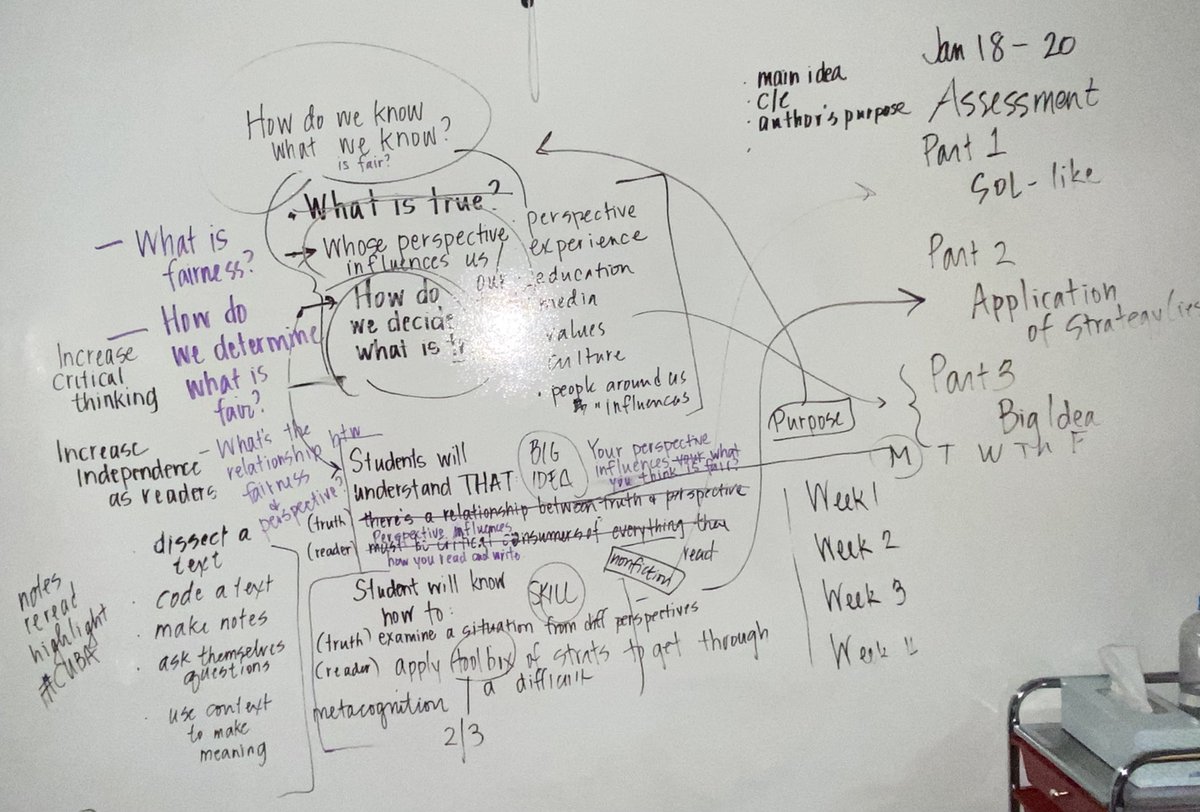 How do we know
what we know?
is fair?
What is true?
Whose perspective
influences us
our
How do
we decide
what is
perspective
experience
education
media
values
culture
people around us
influences
— What is
fairness?
— How do
we determine
what is
fair?
- What's the
relationship btw
fairness
&
perspective?
Increase
critical
thinking
Increase
independence
as readers
dissect a
text
code a text
make notes
ask themselves
questions
use context
to make
meaning
notes
reread
highlight
#CUBA
Students will
understand THAT:
BIG
IDEA
Your perspective
influences your what
you think is fair?
(truth) there's a relationship between truth & perspective
Perspective influences
(reader) must be critical consumers of everything they
read
how you read and write
nonfiction
Student will know
how to:
SKILL
(truth) examine a situation from diff perspectives
(reader) apply toolbox of strats to get through
a difficult
metacognition
2/3
main idea
c/e
author's purpose
Jan 18 - 20
Assessment
Part 1
SOL - like
Part 2
Application
of strategy(ies
Part 3
Big Idea
Purpose
M T W Th F
Week 1
Week 2
Week 3
Week